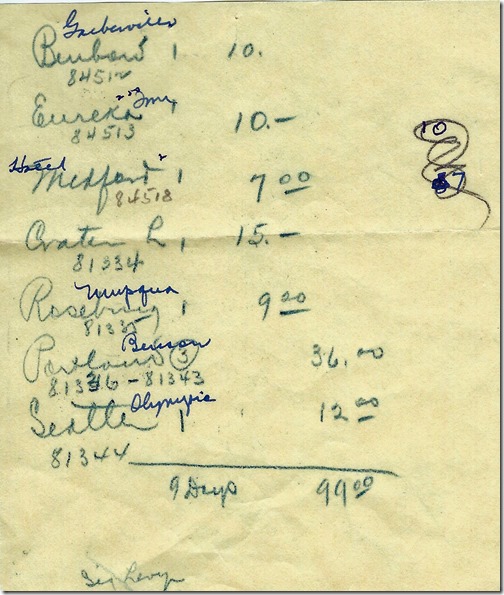 Garberville
Benbow 1 10.
84512
Eureka Inn 1 10.-
84513
10
Hotel Medford 1 7 00
84518
7
Crater L 1 15.-
81334
Umpqua
Roseburg 1 9 00
81335
Benson
Portland 3 36.00
81336 - 81343
Seattle Olympic 1 12 00
81344
9 Days 99 00
Levy